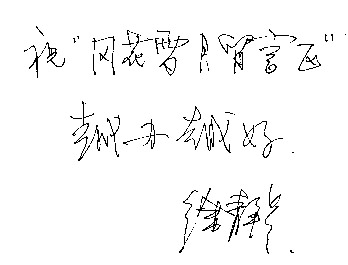 祝"风花雪月贺言区"
越办越好.
徐静